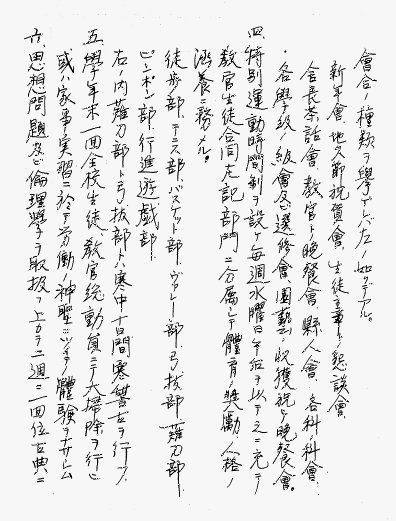 會合ノ種類ヲ擧グレバ左ノ如クデアル。
新年會、地久節祝賀會、生徒主事ト懇談會
舍長茶話會、教官ト晩餐會、縣人會、各科ノ科會
・各學級ノ級會及ビ選修會、園藝ノ收穫祝ヒ晩餐會。
四、特別運動時間割ヲ設ケ毎週水曜日午后ヲ以テ之ニ充テ
教官生徒合同左記部門ニ分屬シテ體育ノ奬勵、人格ノ
涵養ニ務メル。
徒歩部、テニス部、バスケット部、ヴァレー部、弓技部、薙刀部
ピンポン部、行進遊戯部、
右ノ内薙刀部ト弓技部トハ寒中十日間寒稽古ヲ行フ
五、學年末一回全校生徒、教官総動員ニテ大掃除ヲ行ヒ
或ハ家事ノ實習ニ於テ労働ノ神聖ニツイテノ體驗ヲナサシム
六、思想問題及ビ倫理學ヲ取扱フ上カラ二週ニ一回位古典ニ